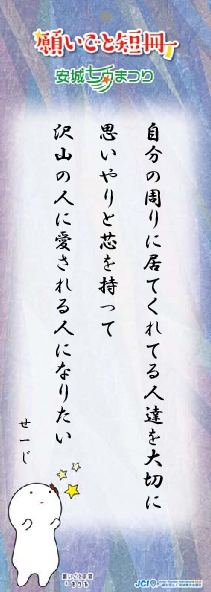 願いごと短冊
安城七夕まつり
自分の周りに居てくれてる人達を大切に
思いやりと芯を持って
沢山の人に愛される人になりたい
せーじ
願いごと短冊
JCI